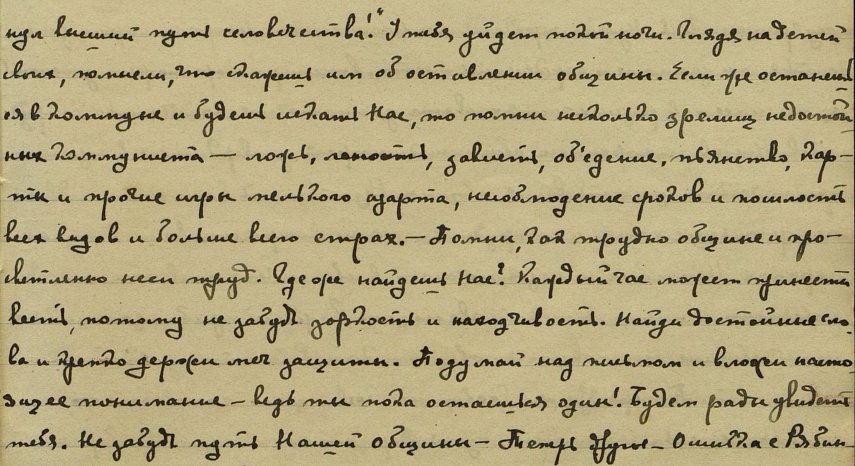 нул высший путь человечества!" У тебя уйдет покой ночи. Глядя на детей
своих, помысли, что скажешь им об оставлении общины. Если же останешь
ся в коммуне и будешь искать Нас, то помни несколько зрелищ недостой
ных коммуниста — ложь, леность, зависть, об'едение, пьянство, кар–
ты и прочие игры мелького азарта, несоблюдение сроков и пошлость
всех видов и больше всего страх. — Помни, как трудно общине и про–
светленно неси труд. Где же найдешь Нас? Каждый час может принести
весть, потому не забудь зоркость и находчивость. Найди достойные сло
ва и крепко держи меч защиты. Подумай над письмом и вложи насто
ящее понимание — ведь ты пока остаешься один! Будем рады увидеть
тебя. Не забудь путь Нашей общины — Теперь другое — Ошибка с Рябин